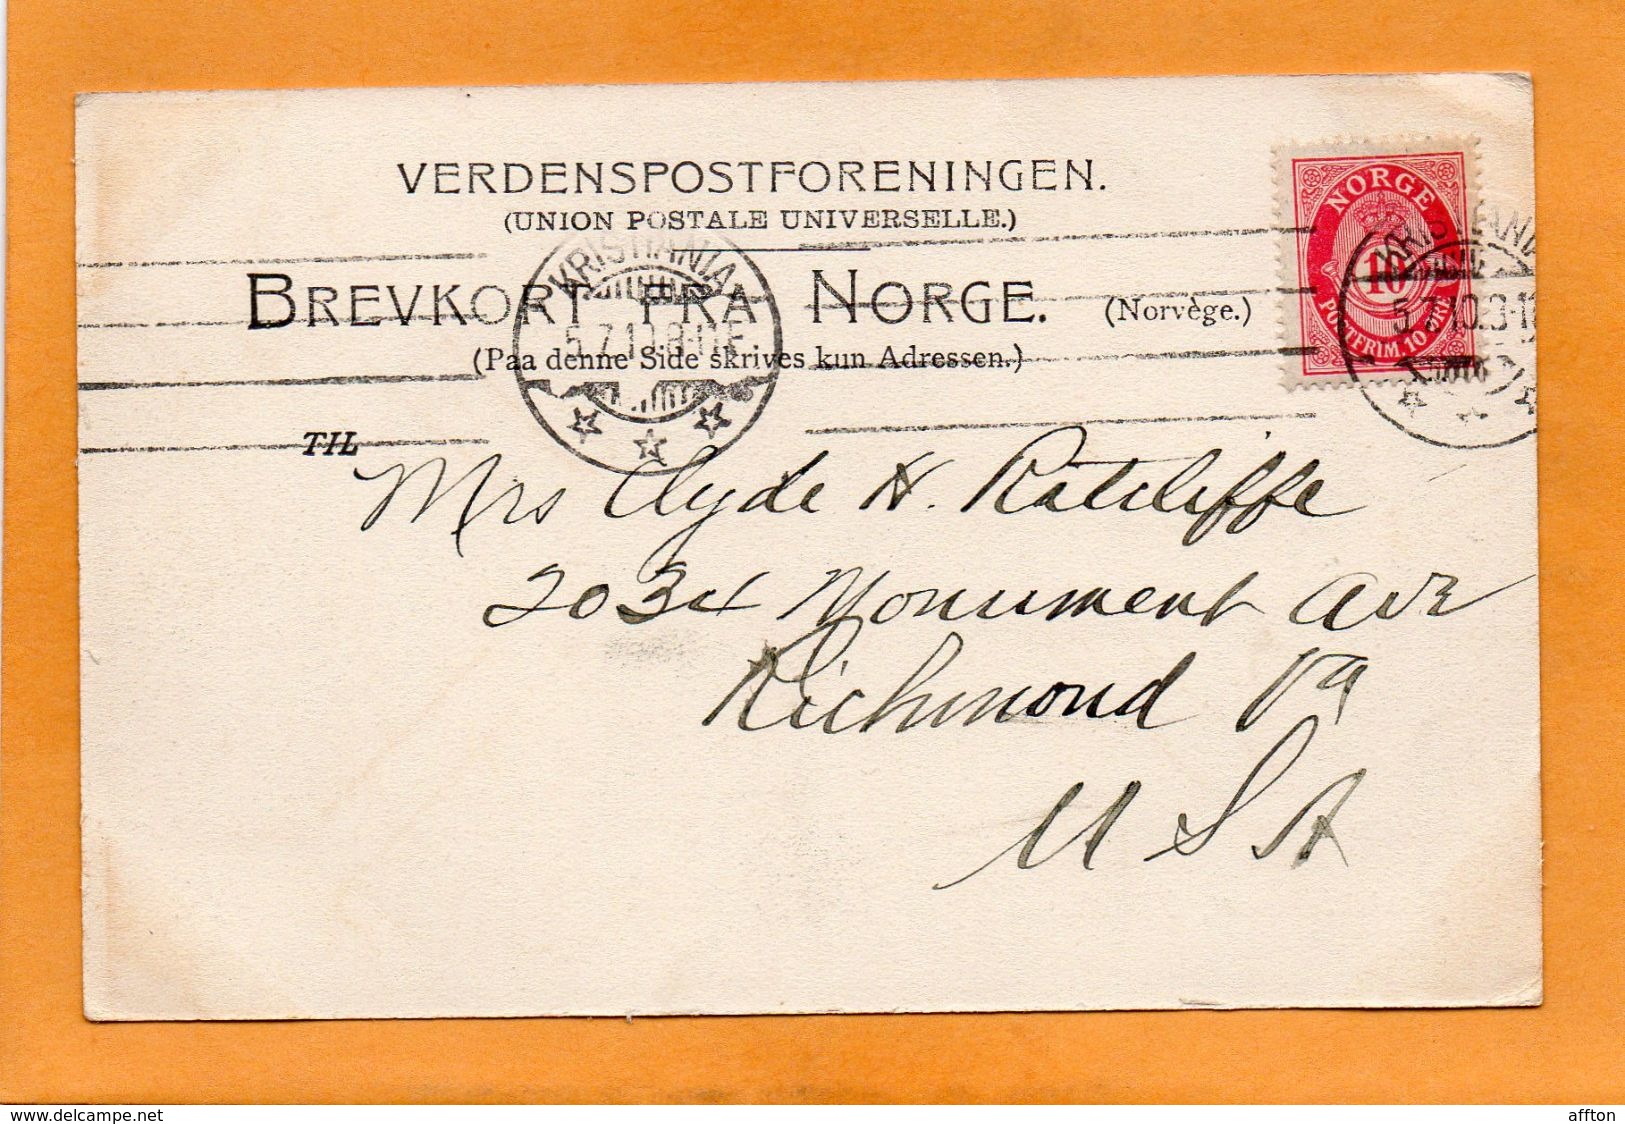 VERDENSPOSTFORENINGEN.
(UNION POSTALE UNIVERSELLE.)
BREVKORT FRA NORGE. (Norvège.)
(Paa denne Side skrives kun Adressen.)
NORGE
10
POSTFRIM. 10 ØRE
KRISTIANIA
5.7.10.8-11E
KRISTIANIA
5.7.10.8-11
TIL
Mrs Clyde H. Ratcliffe
2034 Monument Ave
Richmond Va
U S A
www.delcampe.net
affton